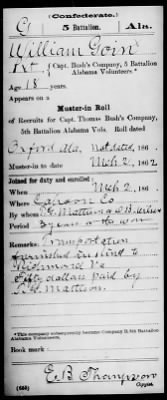 (Confederate.)
G 5 Battalion. Ala.
William Goin
Pvt, Capt. Bush's Company, 5 Battalion
Alabama Volunteers.*
Age 18 years.
Appears on a
Muster-in Roll
of Recruits for Capt. Thomas Bush's Company,
5th Battalion Alabama Vols. Roll dated
Oxford Ala. Not dated, 186 .
Muster-in to date Mch 2, 1862
Joined for duty and enrolled:
When Mch 2, 186 .
Where Calhoun Co
By whom
Period 3 years or the war
Remarks: Transportation
furnished
Richmond Va
fifty dollars paid by
Mattison
*This company subsequently became Company 5th Battalion
Alabama Vols.
Book mark:
E B Thompson
Copyist.